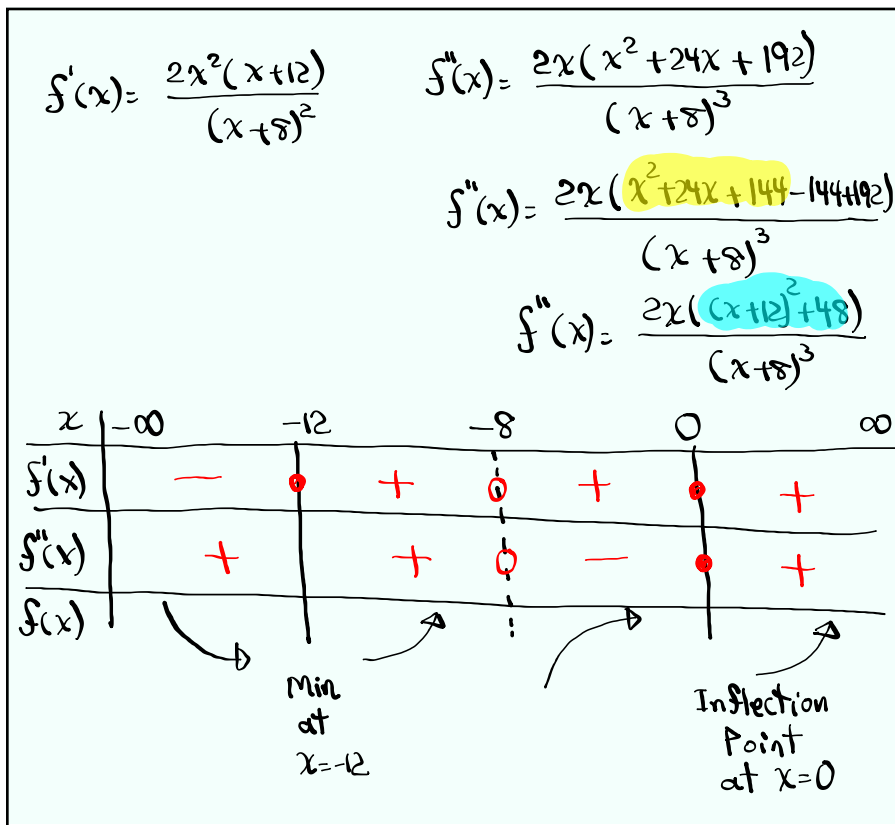 f'(x)= 2x²(x+12) / (x+8)²
f''(x)= 2x(x²+24x+192) / (x+8)³
f''(x)= 2x(x²+24x+144-144+192) / (x+8)³
f''(x)= 2x((x+12)²+48) / (x+8)³
x -∞ -12 -8 0 ∞
f'(x) − + + +
f''(x) + + − +
f(x)
Min
at
x=-12
Inflection
Point
at x=0